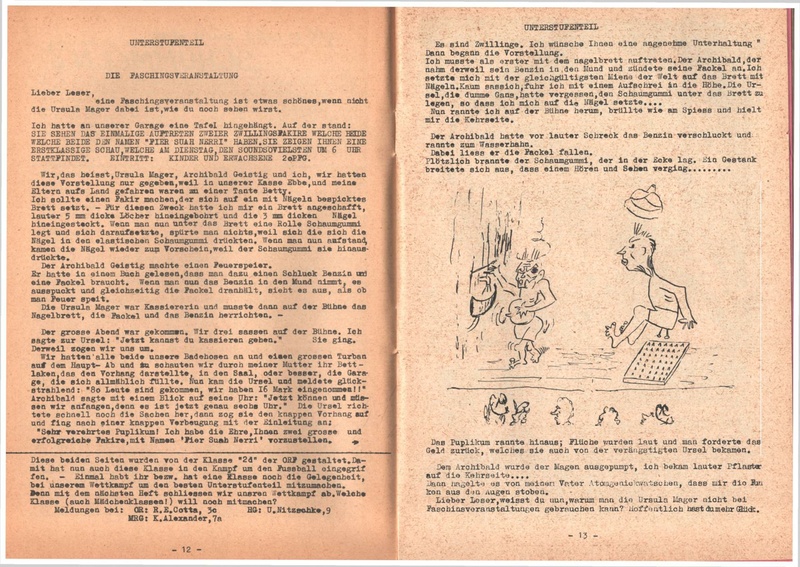 UNTERSTUFENTEIL
DIE FASCHINGSVERANSTALTUNG
Lieber Leser,
eine Faschingsveranstaltung ist etwas schönes,wenn nicht
die Ursula Mager dabei ist,wie du noch sehen wirst.
Ich hatte an unserer Garage eine Tafel hingehängt. Auf der stand:
SIE SEHEN DAS EINMALIGE AUFTRETEN ZWEIER ZWILLINGSFAKIRE WELCHE BEIDE
WELCHE BEIDE DEN NAMEN "PIER SUAH NERRI" HABEN.SIE ZEIGEN IHNEN EINE
ERSTKLASSIGE SCHAU,WELCHE AM DIENSTAG,DEN SOUNDSOVIELSTEN UM 6 UHR
STATTFINDET. EINTRITT: KINDER UND ERWACHSENE 2oPFG.
Wir,das heisst,Ursula Mager, Archibald Geistig und ich, wir hatten
diese Vorstellung nur gegeben,weil in unserer Kasse Ebbe,und meine
Eltern aufs Land gefahren waren zu einer Tante Betty.
Ich sollte einen Fakir machen,der sich auf ein mit Nägeln bespicktes
Brett setzt. - Für diesen Zweck hatte ich mir ein Brett angeschafft,
lauter 5 mm dicke Löcher hineingebohrt und die 3 mm dicken Nägel
hineingesteckt. Wenn man nun unter das Brett eine Rolle Schaumgummi
legt und sich daraufsetzte, spürte man nichts,weil sich die sich die
Nägel in den elastischen Schaumgummi drückten. Wenn man nun aufstand,
kamen die Nägel wieder zum Vorschein,weil der Schaumgummi sie hinaus-
drückte.
Der Archibald Geistig machte einen Feuerspeier.
Er hatte in einem Buch gelesen,dass man dazu einen Schluck Benzin und
eine Fackel braucht. Wenn man nun das Benzin in den Mund nimmt, es
ausspuckt und gleichzeitig die Fackel dranhält, sieht es aus, als ob
man Feuer speit.
Die Ursula Mager war Kassiererin und musste dann auf der Bühne das
Nagelbrett, die Fackel und das Benzin herrichten. -
Der grosse Abend war gekommen. Wir drei sassen auf der Bühne. Ich
sagte zur Ursel: "Jetzt kannst du kassieren gehen." Sie ging.
Derweil zogen wir uns um.
Wir hatten alle beide unsere Badehosen an und einen grossen Turban
auf dem Haupt- Ab und zu schauten wir durch meiner Mutter ihr Bett-
laken,das den Vorhang darstellte, in den Saal,oder besser, die Gara-
ge, die sich allmählich füllte. Nun kam die Ursel und meldete glück-
strahlend: "8o Leute sind gekommen, wir haben 16 Mark eingenommen!!"
Archibald sagte mit einem Blick auf seine Uhr: "Jetzt können und müs-
sen wir anfangen,denn es ist jetzt genau sechs Uhr." Die Ursel rich-
tete schnell noch die Sachen her,dann zog sie den knappen Vorhang auf
und fing nach einer knappen Verbeugung mit der Einleitung an:
"Sehr verehrtes Puplikum! Ich habe die Ehre,Ihnen zwei grosse und
erfolgreiche Fakire,mit Namen 'Pier Suah Nerri' vorzustellen.
Diese beiden Seiten wurden von der Klasse "2d" der ORF gestaltet.Da-
mit hat nun auch diese Klasse in den Kampf um den Fussball eingegrif
fen. - Einmal habt ihr bezw. hat eine Klasse noch die Gelegenheit,
bei unserem Wettkampf um den besten Unterstufenteil mitzumachen.
Denn mit dem nächsten Heft schliessen wir unsren Wettkampf ab.Welche
Klasse (auch Mädchenklassen!) will noch mitmachen?
Meldungen bei: OR: R.E.Cotta, 3c HG: U.Nitzschke,9
MRG: K.Alexander,7a
- 12 -
UNTERSTUFENTEIL
Es sind Zwillinge. Ich wünsche Ihnen eine angenehme Unterhaltung"
Dann begann die Vorstellung.
Ich musste als erster mit dem nagelbrett auftreten.Der Archibald,der
nahm derweil sein Benzin in den Mund und zündete seine Fackel an.Ich
setzte mich mit der gleichgültigsten Miene der Welt auf das Brett mit
Nägeln.Kaum sassich,fuhr ich mit einem Aufschrei in die Höhe.Die Ur-
sel,die dumme Gans,hatte vergessen,den Schaumgummi unter das Brett zu
legen, so dass ich mich auf die Nägel setzte....
Nun rannte ich auf der Bühne herum, brüllte wie am Spiess und hielt
mir die Kehrseite.
Der Archibald hatte vor lauter Schreck das Benzin verschluckt und
rannte zum Wasserhahn.
Dabei liess er die Fackel fallen.
Plötzlich brannte der Schaumgummi, der in der Ecke lag. Ein Gestank
breitete sich aus, dass einem Hören und Sehen verging.........
Das Puplikum rannte hinaus; Flüche wurden laut und man forderte das
Geld zurück, welches sie auch von der verängstigten Ursel bekamen.
Dem Archibald wurde der Magen ausgepumpt, ich bekam lauter Pflaster
auf die Kehrseite....
Dann hagelte es von meinem Vater Atomgenickwatschen, dass mir die Fun
ken aus den Augen stoben.
Lieber Loser,weisst du nun,warum man die Ursula Mager nicht bei
Faschinsveranstaltungen gebrauchen kann? Hoffentlich hast du mehr Glück.
- 13 -